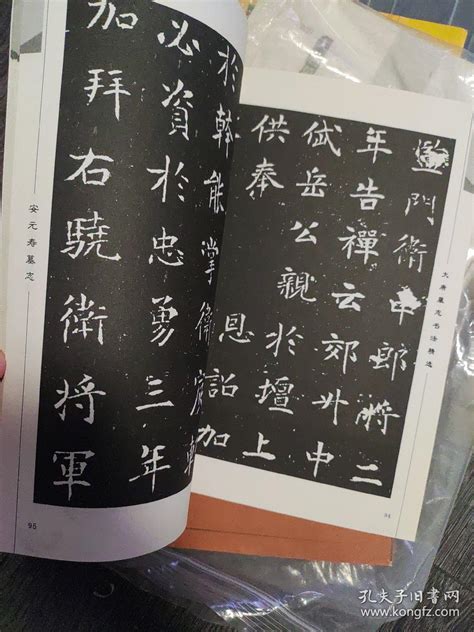 監門衛中郎將二
年告禪云郊外中
岱岳公親於壇上
供奉恩詔加
大唐墓志书法精选
94
於幹能掌衛宸軒
必資於忠勇三年
加拜右驍衛将軍
安元寿墓志
95
孔夫子旧书网
www.kongfz.com